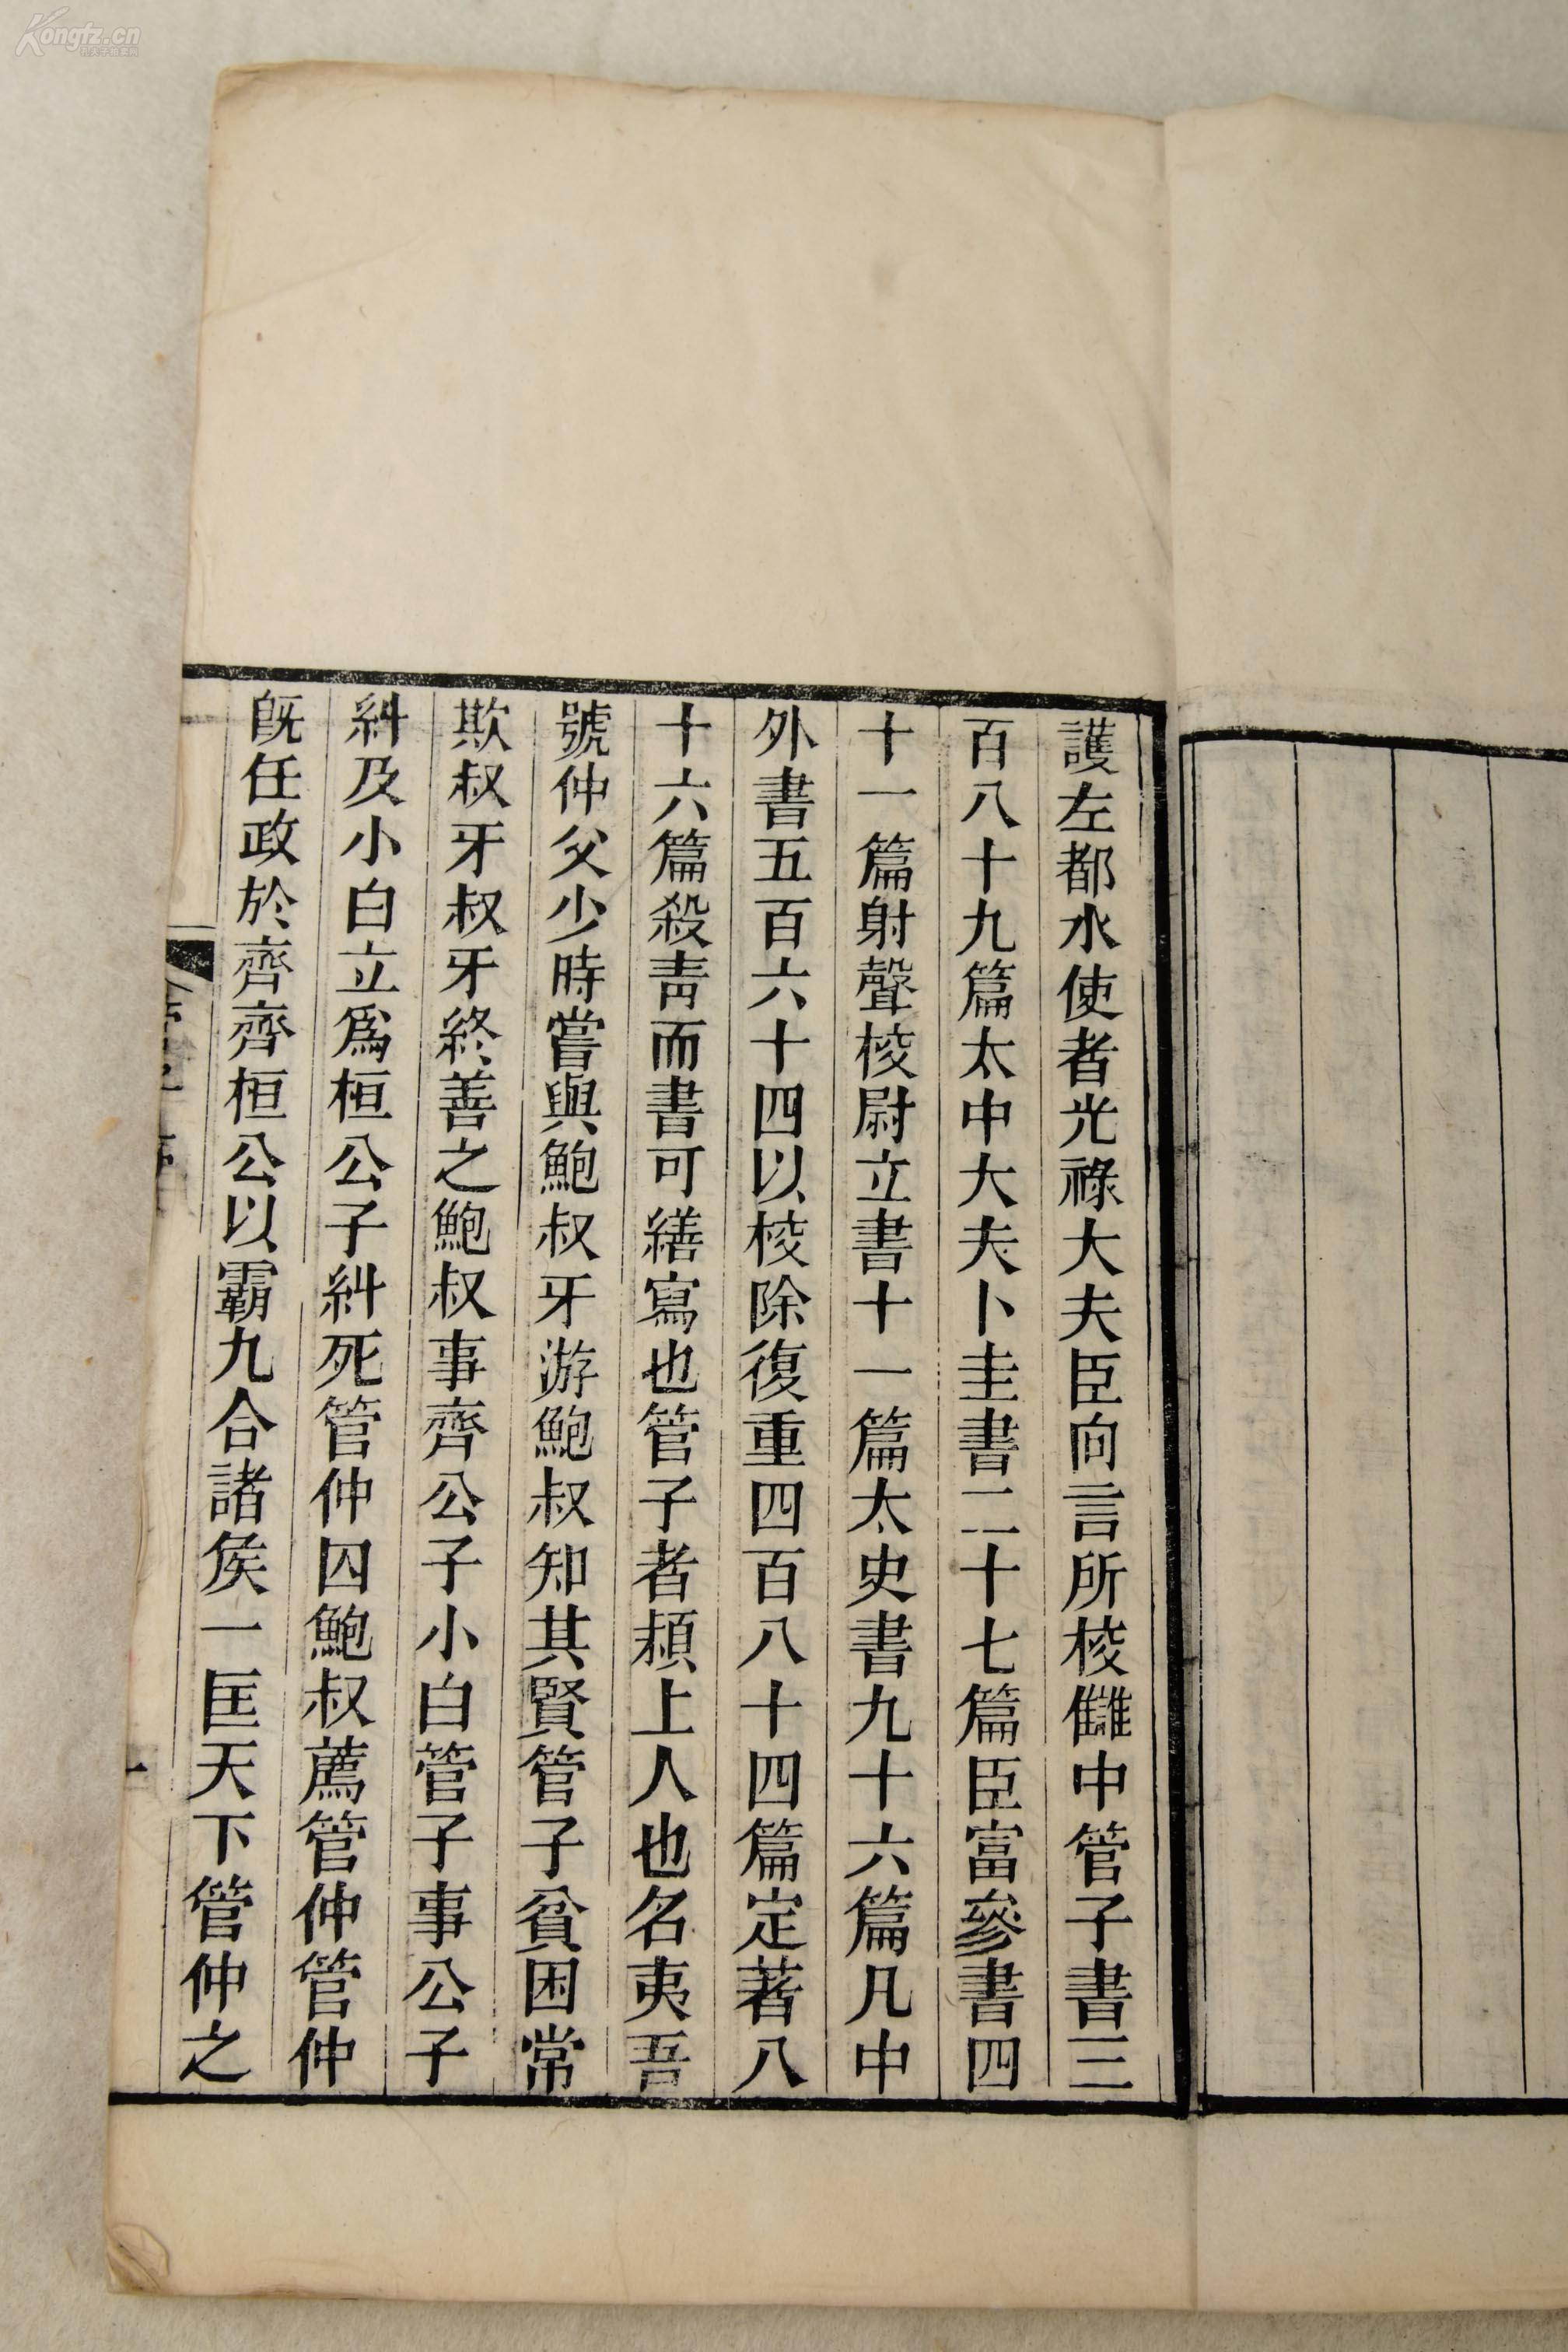 護左都水使者光祿大夫臣向言所校讎中管子書三
百八十九篇太中大夫卜圭書二十七篇臣富參書四
十一篇射聲校尉立書十一篇太史書九十六篇凡中
外書五百六十四以校除復重四百八十四篇定著八
十六篇殺青而書可繕寫也管子者頴上人也名夷吾
號仲父少時嘗與鮑叔牙游鮑叔知其賢管子貧困常
欺叔牙叔牙終善之鮑叔事齊公子小白管子事公子
糾及小白立爲桓公子糾死管仲囚鮑叔薦管仲管仲
旣任政於齊齊桓公以霸九合諸侯一匡天下管仲之
Kongfz.cn